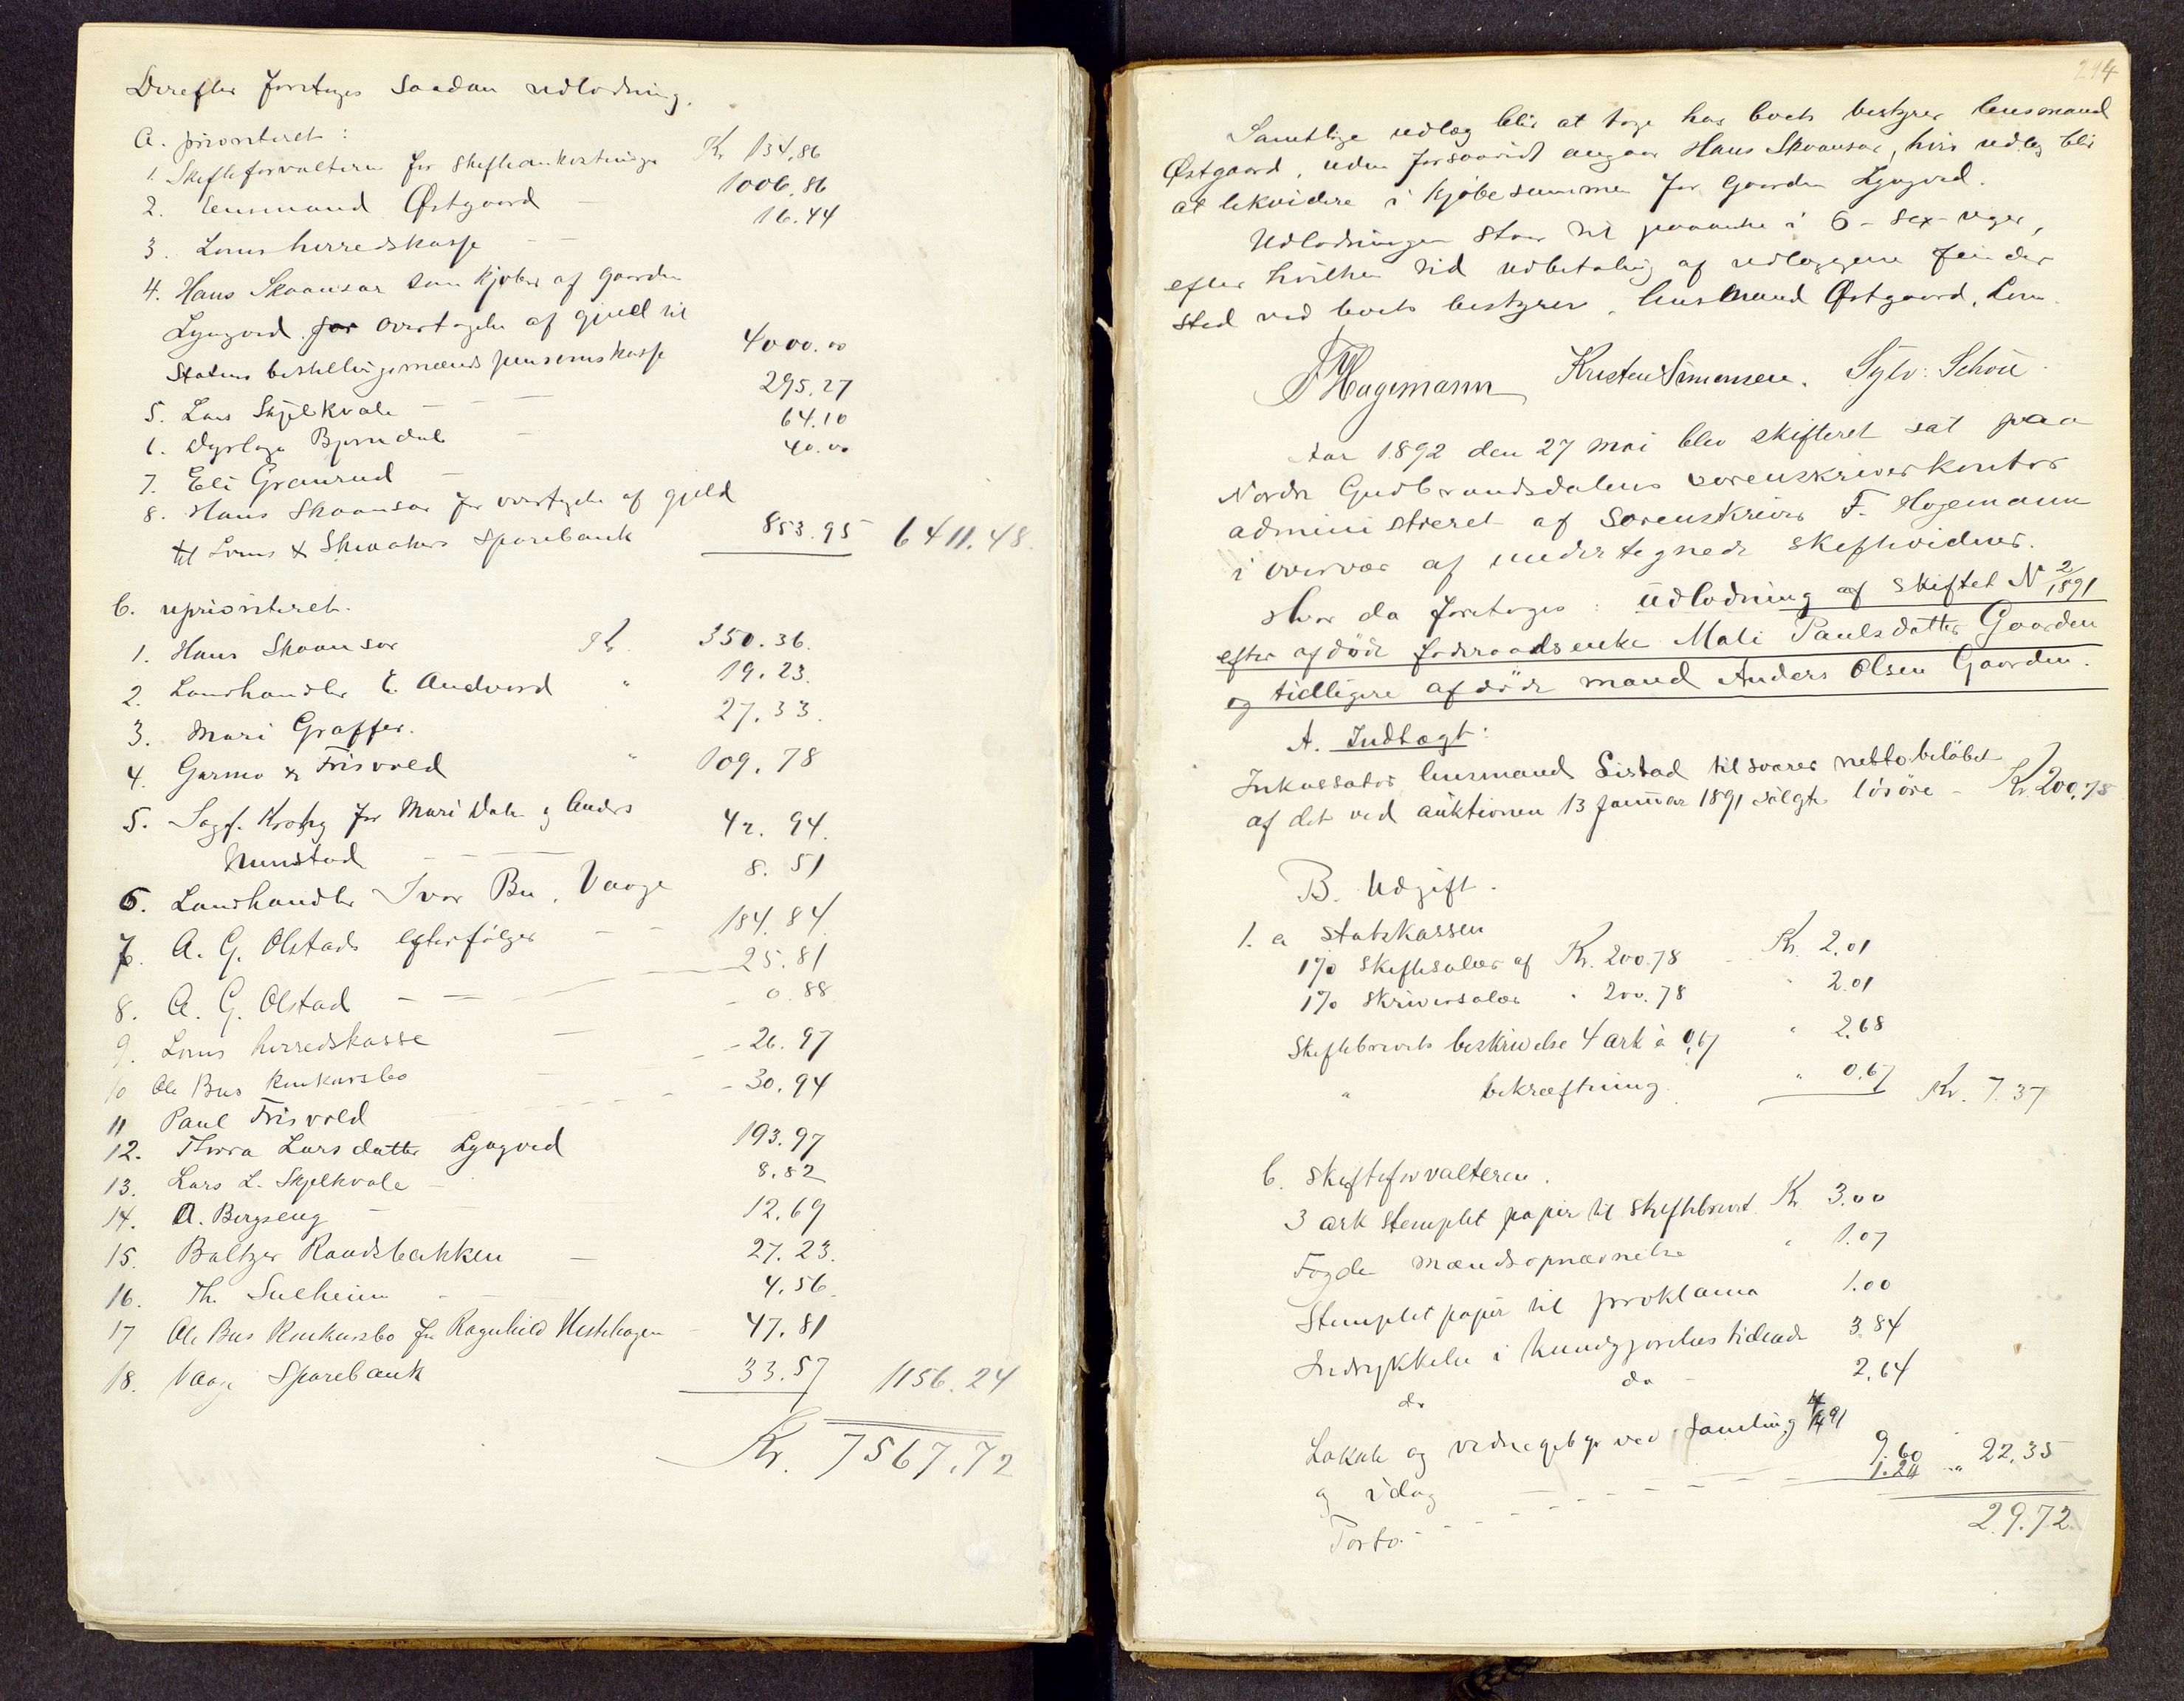 Derefter foretoges saadan udlodning.
A. prioriteret:
1. Skifteforvalteren for skifteomkostninger Kr 134,86
2. Lensmand Østgaard – 1006,86
3. Loms herredskasse – – 16.44
4. Hans Skaansar som kjøber af gaarden
Lyngved for overtagelse af gjæld til
Statens bestillingsmænds pensionskasse 4000.00
5. Lars Skjelkvale – – – 295.27
6. Dyrlæge Bjørndal – 64.10
7. Eli Gramrud – 40.00
8. Hans Skaansar for overtagelse af gjeld
til Loms & Skiaakers Sparebank 853.95 6411.48.
C. uprioriteret.
1. Hans Skaansar Kr. 350.36.
2. Landhandler E. Andvord " 19.23.
3. Mari Graffer. 27.33.
4. Garmo & Frisvold " 109.78
5. Sagf. Krohg for Mari Dale og Anders
Nunstad – – – 42.94.
6. Landhandler Ivar Bu, Vaage 8.51
7. A. G. Olstads efterfølger – – 184.84.
8. A. G. Olstad – – – 25.81
9. Loms herredskasse – – 0.88
10 Ole Bus konkursbo – – 26.97
11 Paul Frisvold – – – – 30.94
12. Thora Larsdatter Lyngved 193.97
13. Lars L. Skjelkvale – 8.82
14. A. Bergseng – – 12.69
15. Baltzer Raadsbakken – 27.23.
16. Th. Sulheim – – 4.56.
17 Ole Bus konkursbo for Ragnhild Hestehagen – 47.81
18. Vaage Sparebank 33.57 1156.24
Kr. 7567.72
294
Samtlige udlæg blir at tage hos boets bestyrer lensmand
Østgaard, uden forsaavidt angaar Hans Skaansar, hvis udlæg blir
at likvidere i kjøbesummen for gaarden Lyngved.
Udlodningen staar til paaanke i 6 – sex – uger,
efter hvilken tid udbetaling af udlæggene finder
sted ved boets bestyrer, lensmand Østgaard, Lom.
F Hagemann Kristen Simensen. Sylv: Schou.
Aar 1892 den 27 mai blev skifteret sat paa
Nordre Gudbrandsdalens sorenskriverkontor
administreret af sorenskriver F. Hagemann
i overvær af undertegnede skiftevidner.
Hvor da foretoges: Udlodning af skiftet N 2/1891
efter afdøde foderaadsenke Mali Paulsdatter Gaarden
og tidligere afdøde mand Anders Olsen Gaarden.
A. Indtægt:
Inkassator lensmand Sistad tilsvarer nettobeløbet
af det ved auktionen 13 januar 1891 solgte løsøre – Kr 200,78
B. Udgift.
1. a Statskassen
1% skiftesalær af Kr. 200.78 – Kr. 2.01
1% skriversalær " 200.78 " 2.01
Skiftebrevets beskrivelse 4 ark à 0,67 " 2,68
" bekræftning " 0.67 Kr. 7.37
b. Skifteforvalteren.
3 ark stemplet papir til skiftebrevet Kr 3.00
Fogden mændsopnævnelse " 1.07
Stemplet papir til proklama 1.00
Indrykkelse i kundgjørelsestidende 3.84
do do – 2.64
Lokale og vidnegebyr ved samling 91
og idag – – – – – 9.60
Porto – – – – – 1.20 " 22,35
29.72